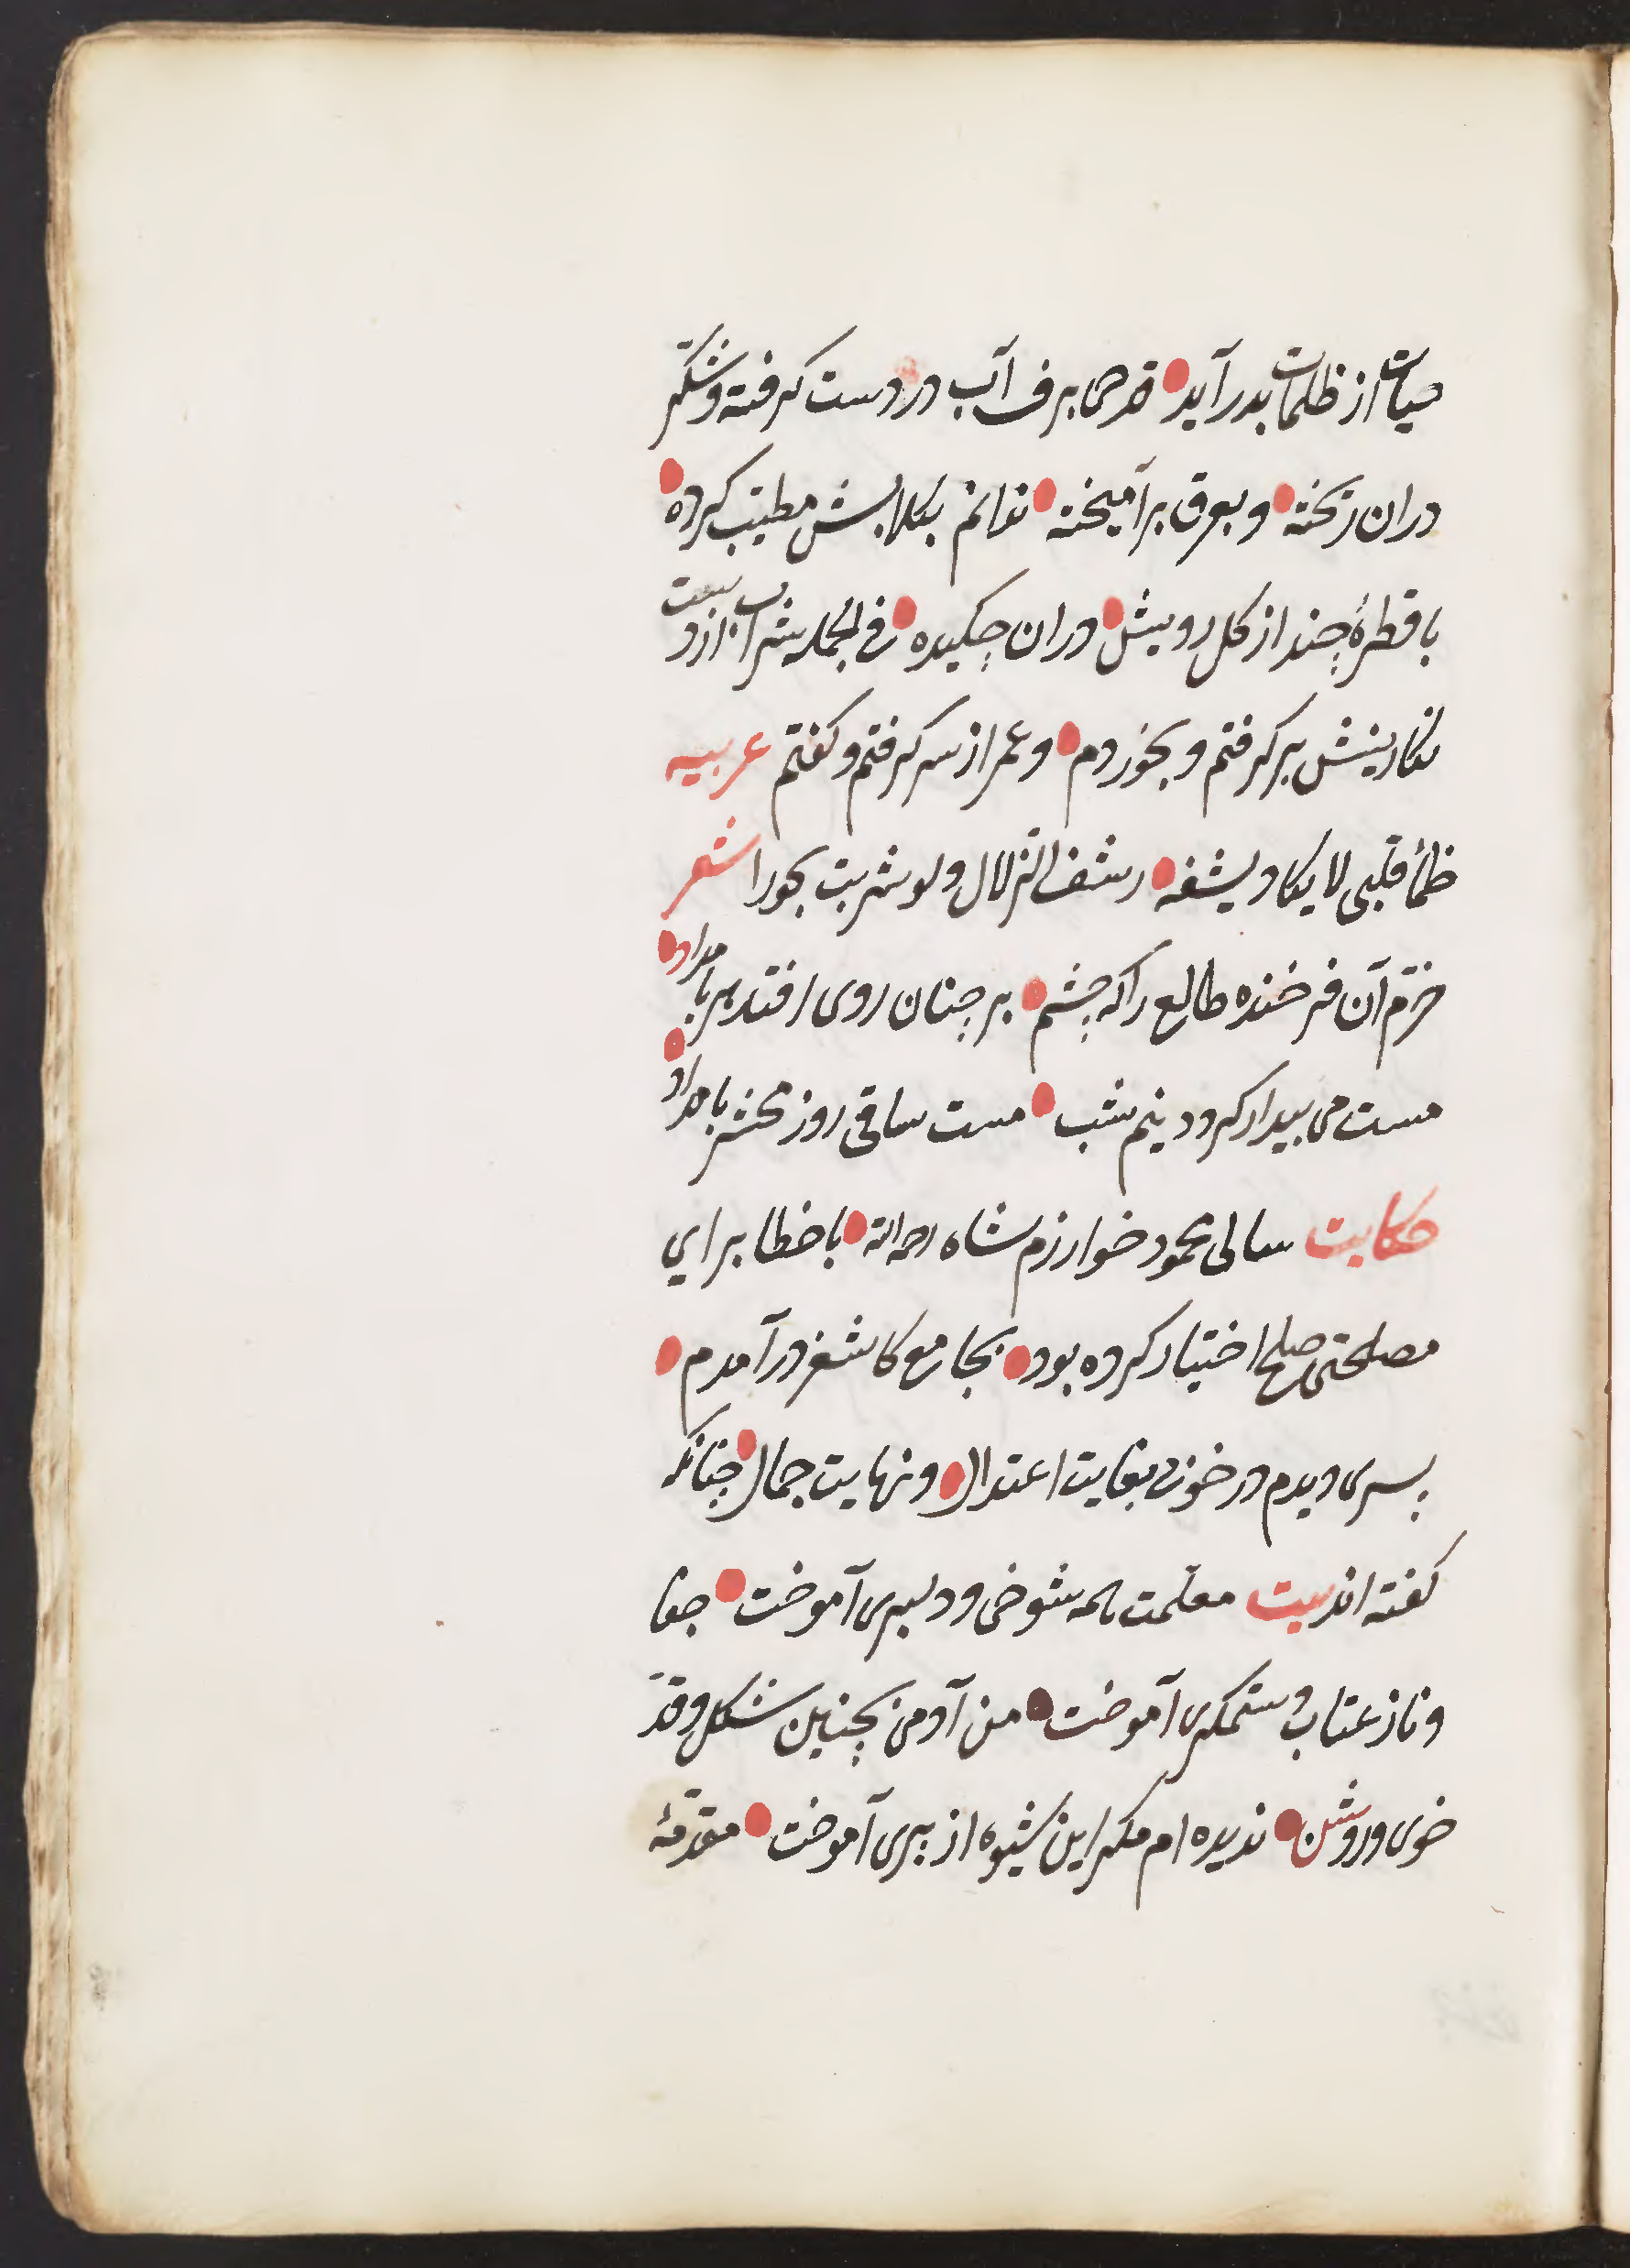 حیات از ظلمات بدر آید قدحی برف آب در دست کرفته و شکر
دران ریخته و بعرق برآمیخته ندانم بکلابش مطیّب کرده
یا قطرۀ چند از کل رویش دران چکیده فی الجمله شراب از دست
نکارینش برکرفتم و بخوردم و عمر از سر کرفتم و کفتم عربیه
ظمأ قلبی لا یکاد یشفه رشف الزلال ولو شربت بحورا شعر
خرّم آن فرخنده طالع را که چشم بر چنان روی افتد هر بامداد
مست می بیدار کردد نیم شب مست ساقی روز محشر بامداد
حکایت سالی محمود خوارزم شاه رحمه الله با خطا برای
مصلحتی صلح اختیار کرده بود بجامع کاشغر درآمدم
پسری دیدم در خوبی بغایت اعتدال و نهایت جمال چنانکه
کفته اند بیت معلّمت همه شوخی و دلبری آموخت جفا
و ناز عتاب و ستمکری آموخت من آدمی بچنین شکل و قدّ
خوی و روشن ندیده ام مکر این شیوه از پری آموخت مقدّمۀ